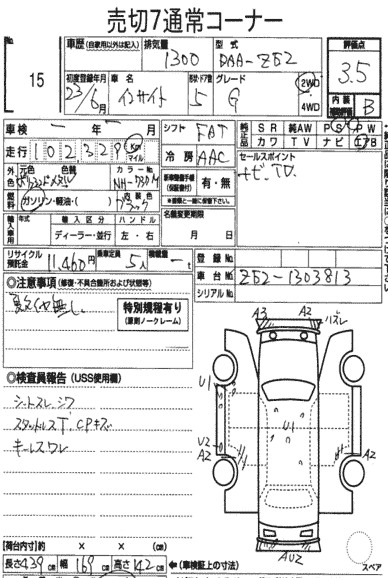 売切7通常コーナー
No. 15
車歴 (自家用以外は記入) 排気量 1300 型式 DAA-ZE2
初度登録年月 23/6月 車名 インサイト ドア数 5 グレード G 2WD 4WD
評価点 3.5
内装 B
車検 年 月
シフト FAT
純正品 SR 純AW PS PW カワ TV ナビ エアB
走行 102,329 Km マイル
冷房 AAC
セールスポイント
ナビ TV.
外色 元色 色替 カラーNo. NH-730M
有・無
燃料 ガソリン・軽油・( ) 内装色 ブラック
名義変更期限
月 日
輸入車用 年式 輸入区分 ディーラー・並行 ハンドル 左・右
リサイクル預託金 11,460円 乗車定員 5人 積載量 t
登録No.
車台No. ZE2-1303813
シリアルNo.
◎注意事項 (修復・不具合箇所および状態等)
特別規程有り
(原則ノークレーム)
◎検査員報告 (USS使用欄)
シートスレ、シワ
キーレスワレ
A3 A2 ハズレ
U1
U1
U2
A2 A2
AU2
【荷台内寸】約 × × (cm)
長さ 439 cm 幅 169 cm 高さ 142 cm ←(車検証上の寸法)
スペア